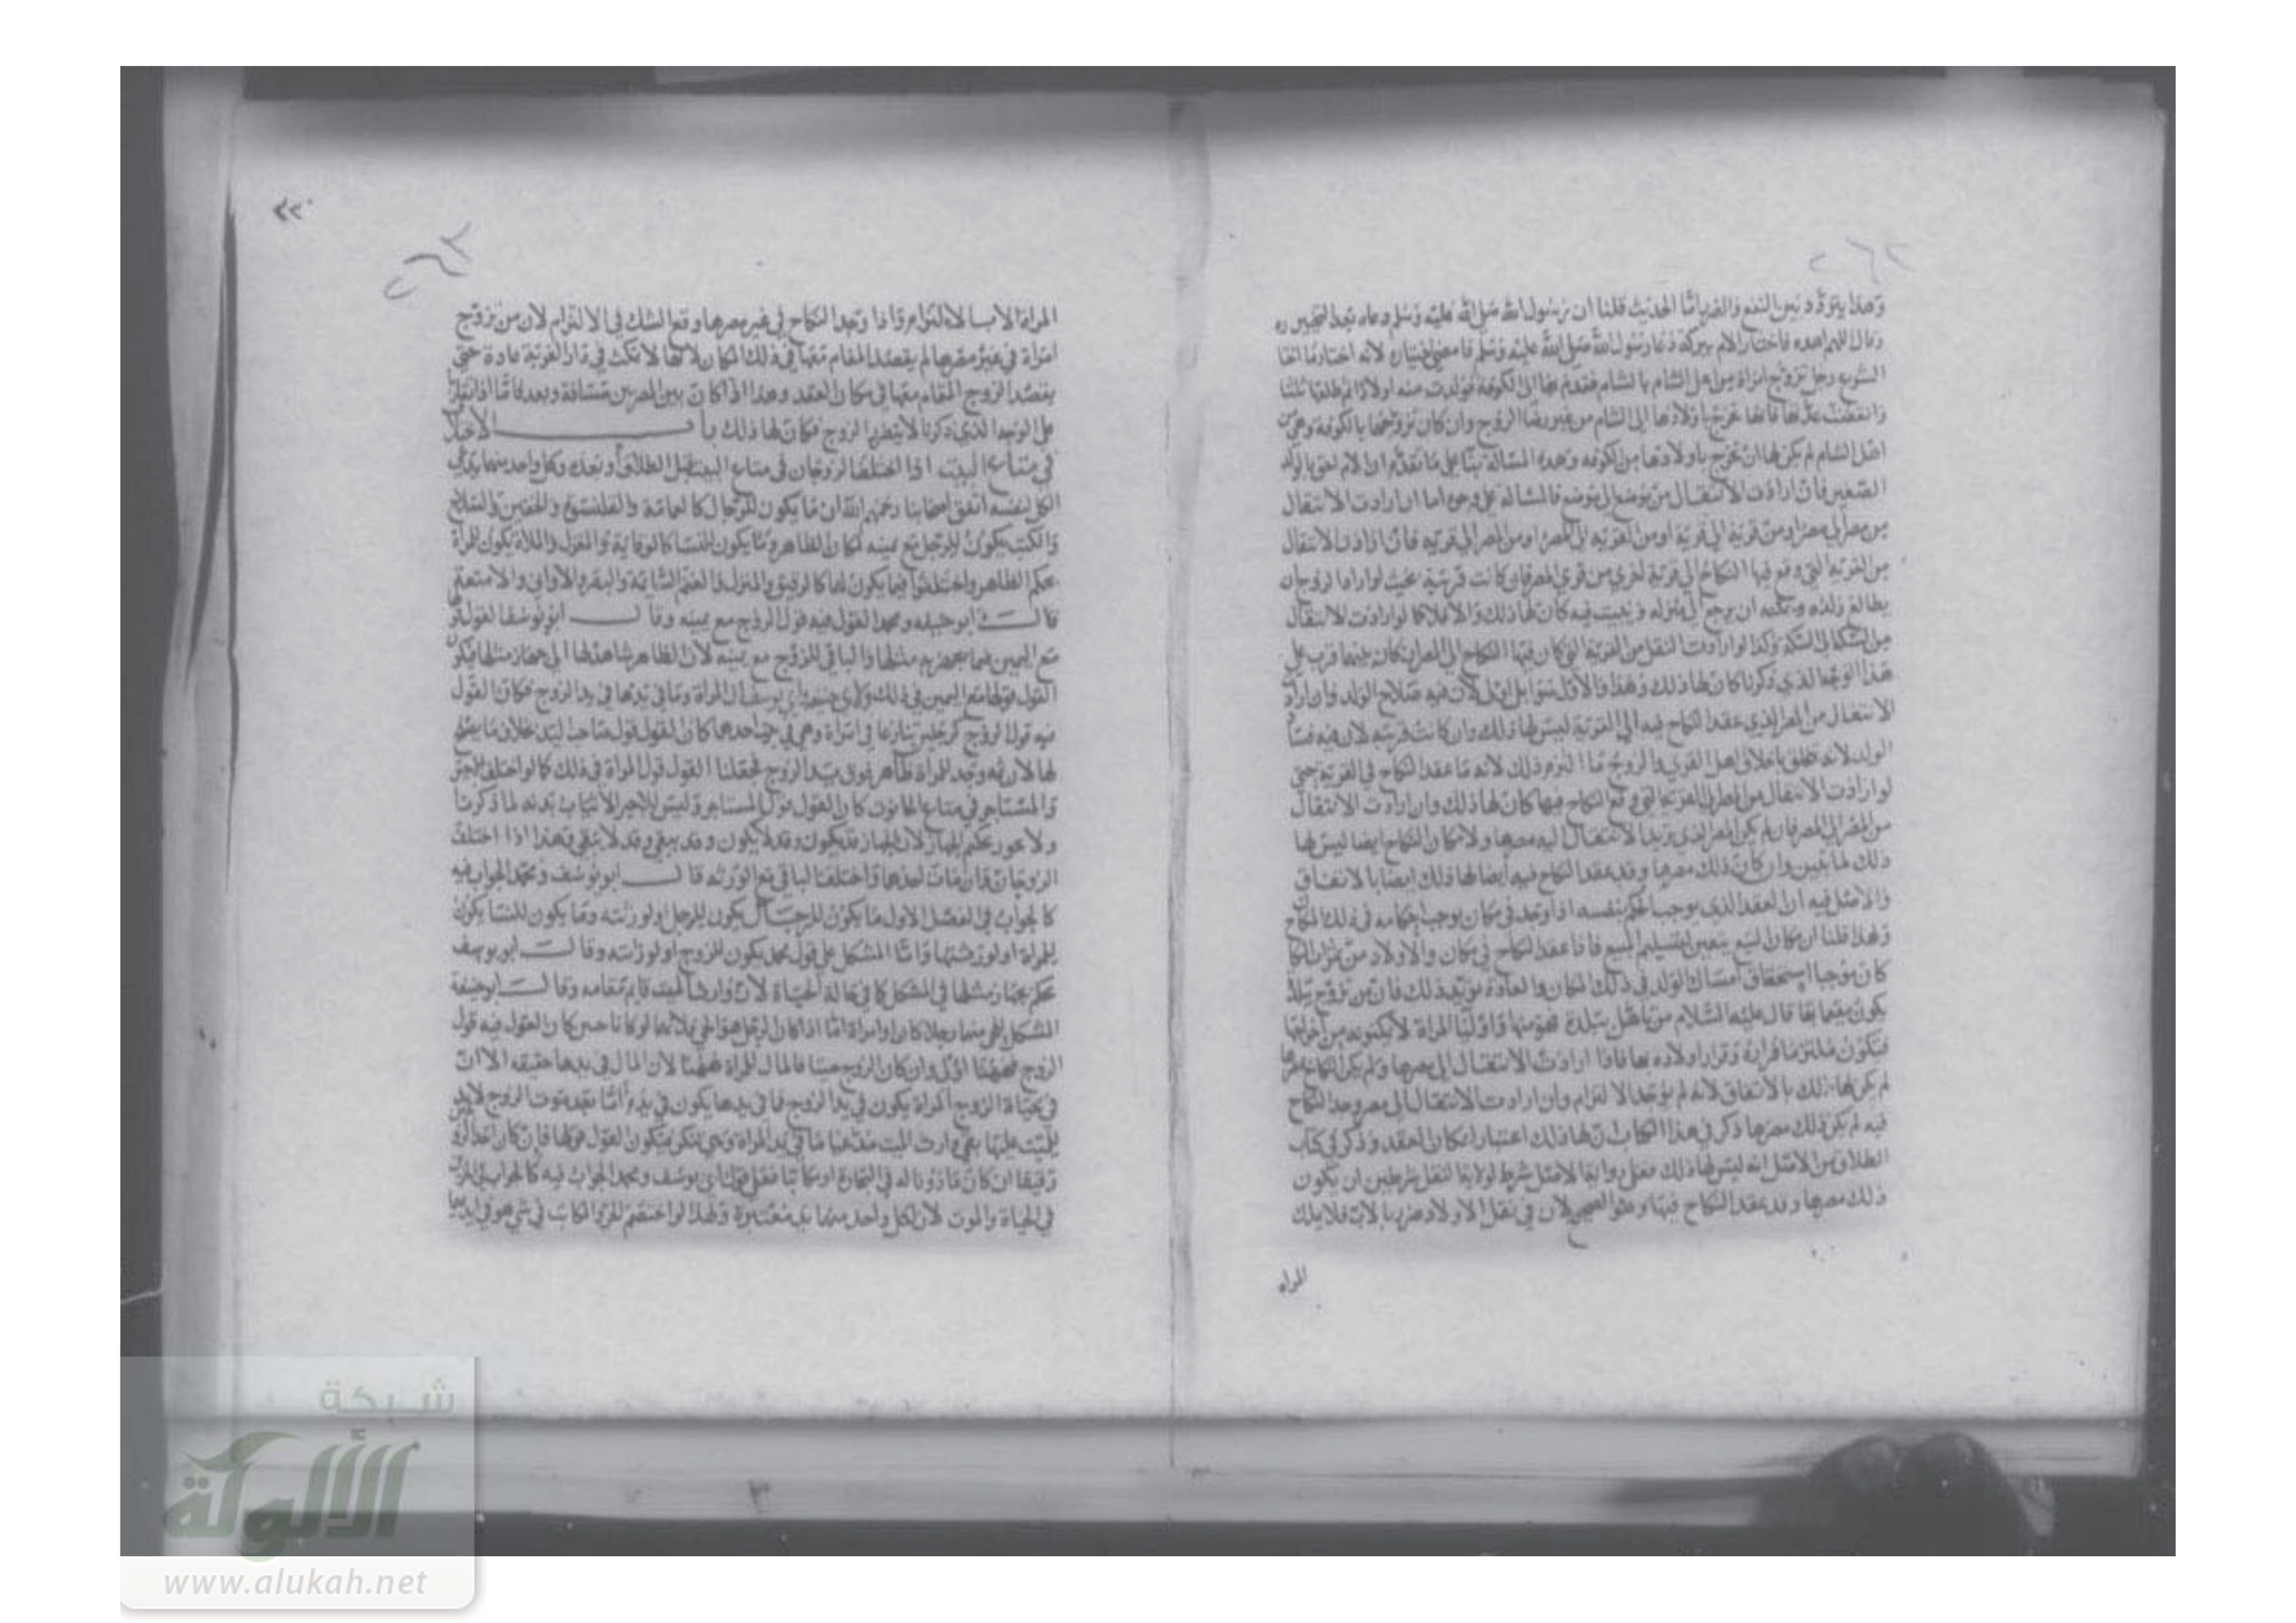 وهذا يتردد بين النفع والضرر اما الحديث قلنا ان رسول الله صلى الله عليه وسلم دعاه بعد التخيير
وقال اللهم اهده فاختار الام ببركة دعا رسول الله صلى الله عليه وسلم
رجل تزوج امراة من اهل الشام بالشام فقدم بها الى الكوفة فولدت منه اولادا ثم طلقها ثلثا
وانقضت عدتها فانها تخرج باولادها الى الشام من غير رضا الزوج وان كان تزوجها بالكوفة وهي من
اهل الشام لم يكن لها ان تخرج باولادها من الكوفه وهذه المسالة بنا على ما تقدم ان الام احق بالولد
الصغير فان ارادت الانتقال من موضع الى موضع فالمسالة على وجوه اما ان ارادت الانتقال
من مصر الى مصر او من قرية الى قرية او من القريه الى المصر او من المصر الى قريه فان ارادت الانتقال
من القريه التي وقع فيها النكاح الى قرية اخرى من قرى المصر فان كانت قريبة بحيث لو اراد الزوج ان
يطالع ولده ويمكنه ان يرجع الى منزله ويبيت فيه كان لها ذلك والا فلا كما لو ارادت الانتقال
من السكة الى السكة وكذا لو ارادت النقل من القرية التي كان فيها النكاح الى المصر ان كان بينهما قرب على
هذا الوجه الذي ذكرنا كان لها ذلك وهذا والاول سوا بل اولى لان فيه صلاح الولد وان ارادت
الانتقال من المصر الذي عقد النكاح فيه الى القرية ليس لها ذلك وان كانت قريبه لان فيه فساد
الولد لانه تخلق باخلاق اهل القرى والزوج ما التزم ذلك لانه ما عقد النكاح في القرية حتى
لو ارادت الانتقال من المصر الى القرية التي وقع النكاح فيها كان لها ذلك وان ارادت الانتقال
من المصر الى المصر فان لم يكن المصر الذي تريد الانتقال اليه مصرها ولا مكان النكاح ايضا ليس لها
ذلك لما تبين وان كان ذلك مصرها وقد عقد النكاح فيه ايضا لها ذلك ايضا بالاتفاق
والاصل فيه ان العقد الذي يوجب الحكم بنفسه اذا وجد في مكان يوجب احكامه في ذلك المكان
ولهذا قلنا ان مكان البيع يتعين لتسليم المبيع فاذا عقد النكاح في مكان والاولاد من ثمرات النكاح
كان موجبا استحقاق امساك الولد في ذلك المكان والعادة تؤيد ذلك فان من تزوج ببلدة
يكون مقيما بها قال عليه السلام من تاهل ببلدة فهو منها
فيكون ملتزما قراره وقرار اولاده بها فاذا ارادت الانتقال الى مصرها ولم يكن النكاح في مصرها
لم يكن لها ذلك بالاتفاق لانه لم يوجد الالتزام وان ارادت الانتقال الى مصر وجد النكاح
فيه لم يكن ذلك مصرها ذكر في هذا الكتاب ان لها ذلك اعتبارا لمكان العقد وذكر في كتاب
الطلاق من الاصل انه ليس لها ذلك فعلى رواية الاصل شرط لولاية النقل شرطين ان يكون
ذلك مصرها وقد عقد النكاح فيها وهو الصحيح لان في نقل الاولاد ضررا بالاب فلا يملك
المراه
المراة الا بالالتزام واذا وجد النكاح في غير مصرها وقع الشك في الالتزام لان من تزوج
امراة في غير مصرها لم يقصد المقام معها في ذلك المكان لانها لا تمكث في دار الغربة عادة حتى
يقصد الزوج المقام معها في مكان العقد وهذا اذا كان بين المصرين مسافة وبعد فاما اذا تقاربا
على الوجه الذي ذكرنا لا يتضرر الزوج فكان لها ذلك باب الاختلاف
في متاع البيت اذا اختلف الزوجان في متاع البيت قبل الطلاق او بعده وكل واحد منهما يدعي
الكل لنفسه اتفق اصحابنا رحمهم الله ان ما يكون للرجال كالعمامة والقلنسوة والخفين والسلاح
والكتب يكون للرجل مع يمينه لمكان الظاهر وما يكون للنسا كالوقاية والمغزل والملاة يكون للمراة
بحكم الظاهر واختلفوا فيما يكون لهما كالرقيق والمنزل والغنم السائمة والبقر والاواني والامتعة
قال ابو حنيفه ومحمد القول فيه قول الزوج مع يمينه وقال ابو يوسف القول قولها
مع اليمين فيما يجهز به مثلها والباقي للزوج مع يمينه لان الظاهر شاهد لها الى جهاز مثلها فيكون
القول قولها مع اليمين في ذلك ولابي حنيفة ان المراة وما في يدها في يد الزوج فكان القول
فيه قول الزوج كرجلين تنازعا في امراة وهي في بيت احدهما كان القول قول صاحب اليد بخلاف ما يصلح
لها لان ثمه وجد للمراة ظاهر فوق يد الزوج فجعلنا القول قول المراة في ذلك كما لو اختلف الاجير
والمستاجر في متاع الحانوت كان القول قول المستاجر وليس للاجير الا ثياب بدنه لما ذكرنا
ولا يجوز تحكيم الجهاز لان الجهاز قد يكون وقد لا يكون وقد يبقى وقد لا يبقى وهذا اذا اختلف
الزوجان فان مات احدهما واختلف الباقي مع الورثه قال ابو يوسف ومحمد الجواب فيه
كالجواب في الفصل الاول ما يكون للرجال يكون للرجل او لورثته وما يكون للنسا يكون
للمراة او لورثتها واما المشكل على قول محمد يكون للزوج او لورثته وقال ابو يوسف
يحكم بجهاز مثلها في المشكل كما في حالة الحياة لان وارث الميت قايم مقامه وقال ابو حنيفة
المشكل للحي منهما رجلا كان او امراة اما اذا كان الرجل هو الحي فلانهما لو كانا حيين كان القول فيه قول
الزوج فههنا اولى وان كان الزوج ميتا فالمال للمراة ههنا لان المال في يدها حقيقه الا ان
في حياة الزوج المراة يكون في يد الزوج فما في يدها يكون في يده اما بعد موت الزوج لا يد
للميت عليها بقي وارث الميت مدعيا ما في يد المراة وهي تنكر فيكون القول قولها فان كان احد الزوجين
رقيقا ان كان ماذونا له في التجارة او مكاتبا فعلى قول ابي يوسف ومحمد الجواب فيه كالجواب في الحرين
في الحياة والموت لان لكل واحد منهما يد معتبرة ولهذا لو اختصم الحر والمكاتب في شي هو في ايديهما
شبكة
الألوكة
www.alukah.net